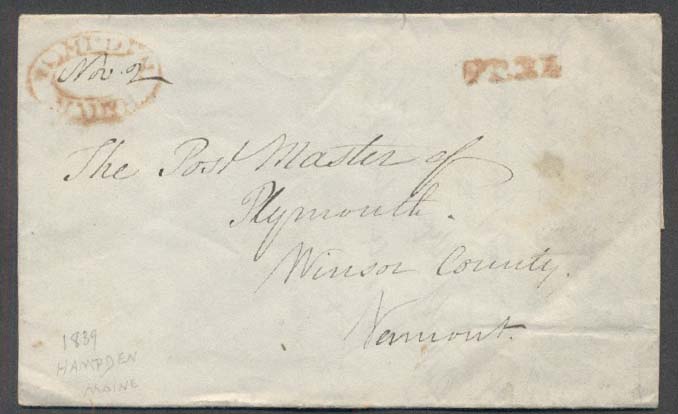 Nov. 2
FREE
The Post Master of
Plymouth.
Winsor County.
Vermont.
1839
HAMPDEN
MAINE